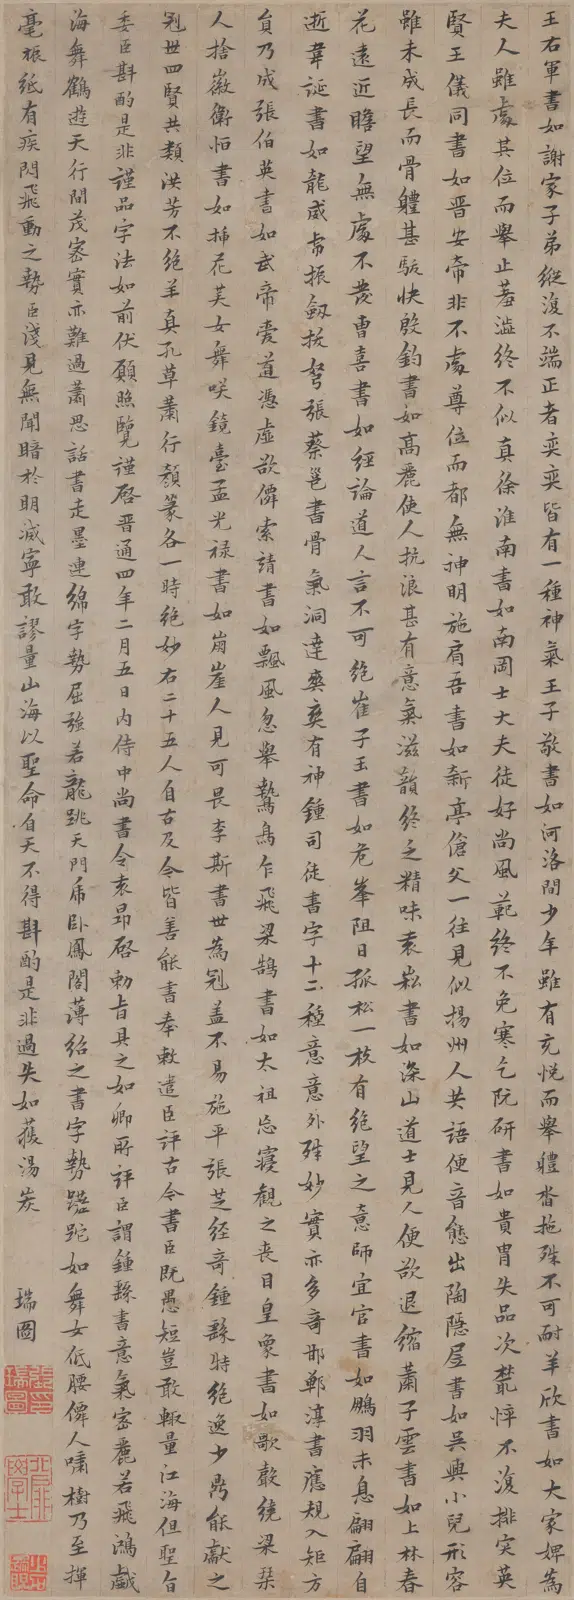 王右軍書如謝家子弟縱復不端正者奕奕皆有一種神氣王子敬書如河洛間少年雖有充悅而舉軆沓拖殊不可耐羊欣書如大家婢為
夫人雖處其位而舉止羞澁終不似真徐淮南書如南岡士大夫徒好尚風範終不免寒乞阮研書如貴胄失品次叢悴不復排突英
賢王儀同書如晉安帝非不處尊位而都無神明施肩吾書如新亭傖父一往見似揚州人共語便音態出陶隱居書如吳興小兒形容
雖未成長而骨軆甚駿快殷鈞書如高麗使人抗浪甚有意氣滋韻終乏精味袁崧書如深山道士見人便欲退縮蕭子雲書如上林春
花遠近瞻望無處不發曹喜書如經論道人言不可絶崔子玉書如危峯阻日孤松一枝有絶望之意師宜官書如鵬羽未息翩翩自
逝韋誕書如龍威虎振劔拔弩張蔡邕書骨氣洞達爽爽有神鍾司徒書字十二種意意外殊妙實亦多竒邯鄲淳書應規入矩方
員乃成張伯英書如武帝愛道憑虛欲僊索靖書如飄風忽舉鷙鳥乍飛梁鵠書如太祖忘寢觀之喪目皇象書如歌聲繞梁琹
人捨徽衛恒書如揷花美女舞咲鏡臺孟光禄書如崩崖人見可畏李斯書世為冠盖不易施平張芝經竒鍾繇特絶逸少鼎能獻之
冠世四賢共類洪芳不絶羊真孔草蕭行顏篆各一時絶妙右二十五人自古及今皆善能書奉敕遣臣評古今書臣既愚短豈敢輙量江海但聖旨
委臣斟酌是非謹品字法如前伏願照覽謹啓晉通四年二月五日內侍中尚書令袁昂啓勅旨具之如卿所評臣謂鍾繇書意氣密麗若飛鴻戲
海舞鶴遊天行間茂密實亦難過蕭思話書走墨連綿字勢屈强若龍跳天門虎卧鳳閣薄紹之書字勢蹉跎如舞女低腰僊人嘯樹乃至揮
毫振紙有疾閃飛動之勢臣淺見無聞暗於明滅寧敢謬量山海以聖命自天不得斟酌是非過失如蒦湯炭
瑞圖